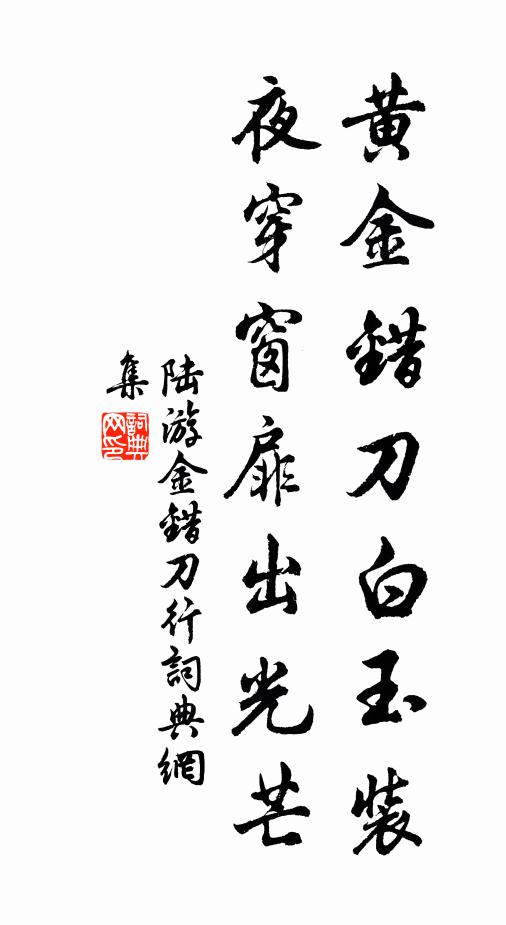 黄金錯刀白玉装
夜穿窗扉出光芒
陆游金錯刀行詞典網
集
詞典网印